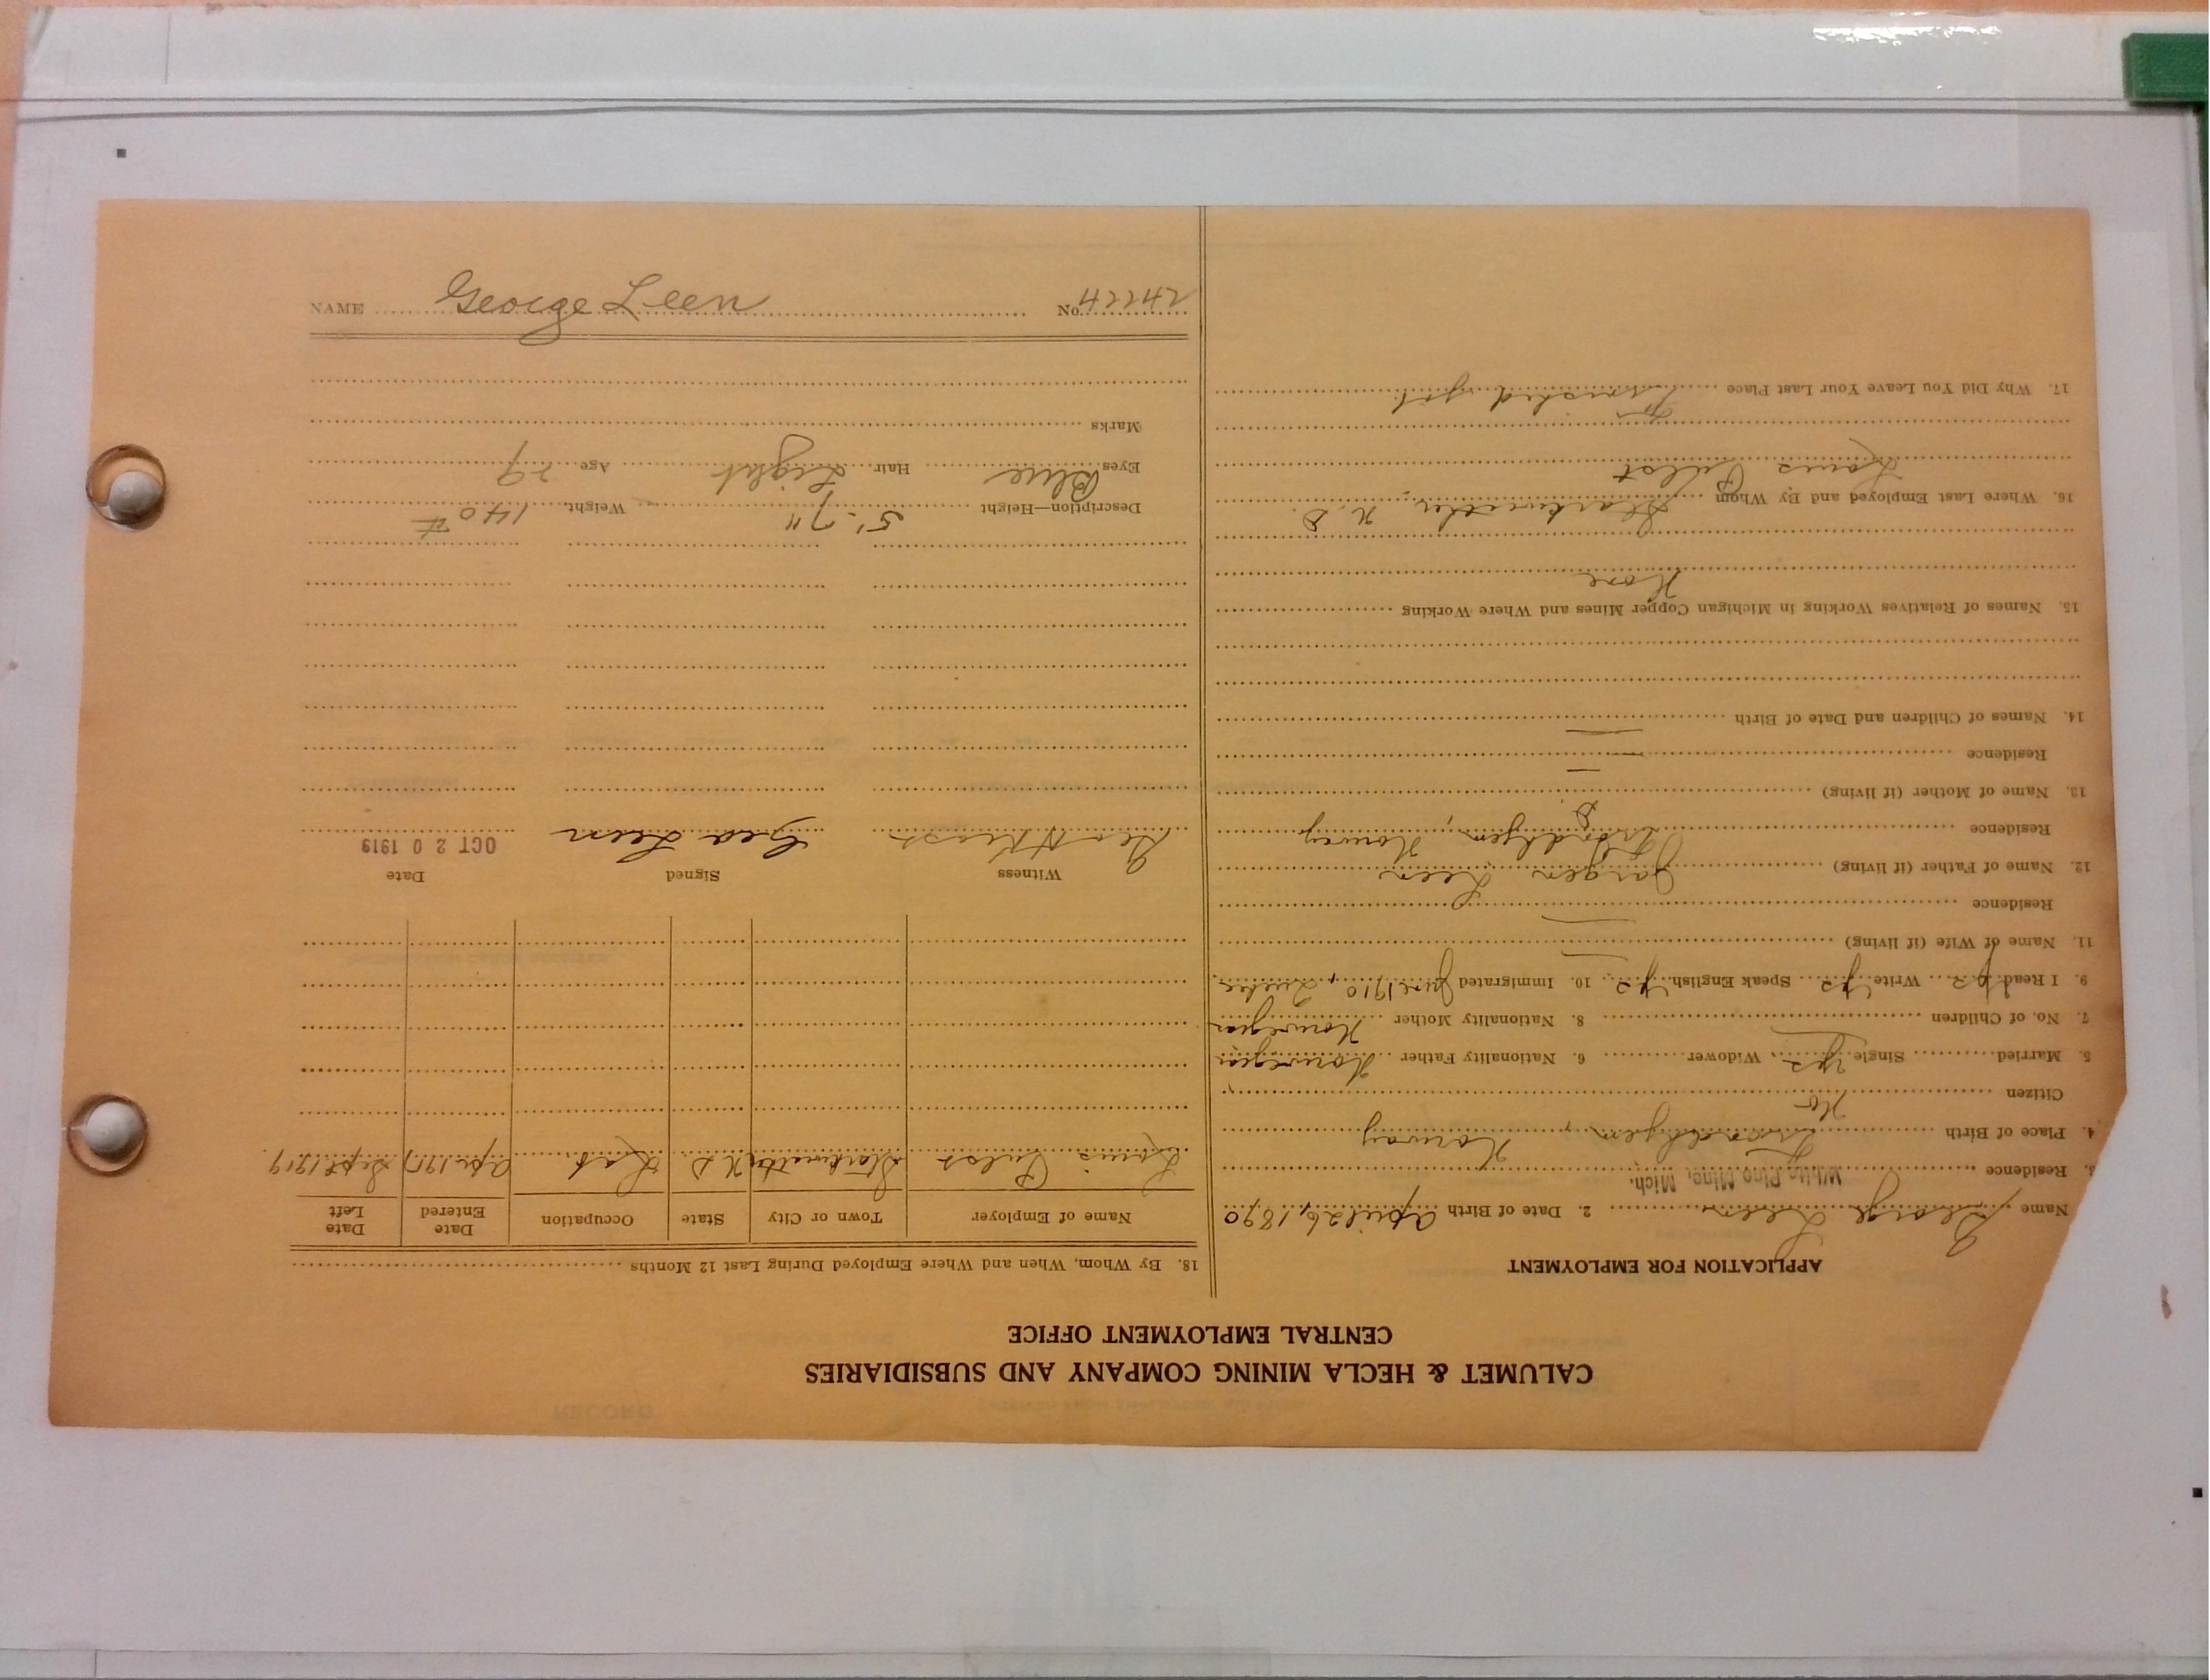 CALUMET & HECLA MINING COMPANY AND SUBSIDIARIES
CENTRAL EMPLOYMENT OFFICE
APPLICATION FOR EMPLOYMENT
Name George Leen 2. Date of Birth April 26, 1890
3. Residence White Pine Mine, Mich.
4. Place of Birth Norway
Citizen No
5. Married Single yes Widower 6. Nationality Father Norwegian
7. No. of Children 8. Nationality Mother Norwegian
9. I Read yes Write yes Speak English yes 10. Immigrated June 1910, Quebec
11. Name of Wife (if living)
Residence
12. Name of Father (if living) Jorgen Leen
Residence Norway
13. Name of Mother (if living)
Residence
14. Names of Children and Date of Birth
15. Names of Relatives Working in Michigan Copper Mines and Where Working
None
16. Where Last Employed and By Whom Starkweather, N. D.
Louis
17. Why Did You Leave Your Last Place Finished job.
18. By Whom, When and Where Employed During Last 12 Months
Name of Employer Town or City State Occupation Date Entered Date Left
Louis Starkweather N D Lab. Apr. 1917 Sept 1919
Witness Signed Date
Geo Leen OCT 20 1919
Description—Height 5'-7" Weight 140 #
Eyes Blue Hair Light Age 29
Marks
NAME George Leen No. 24224